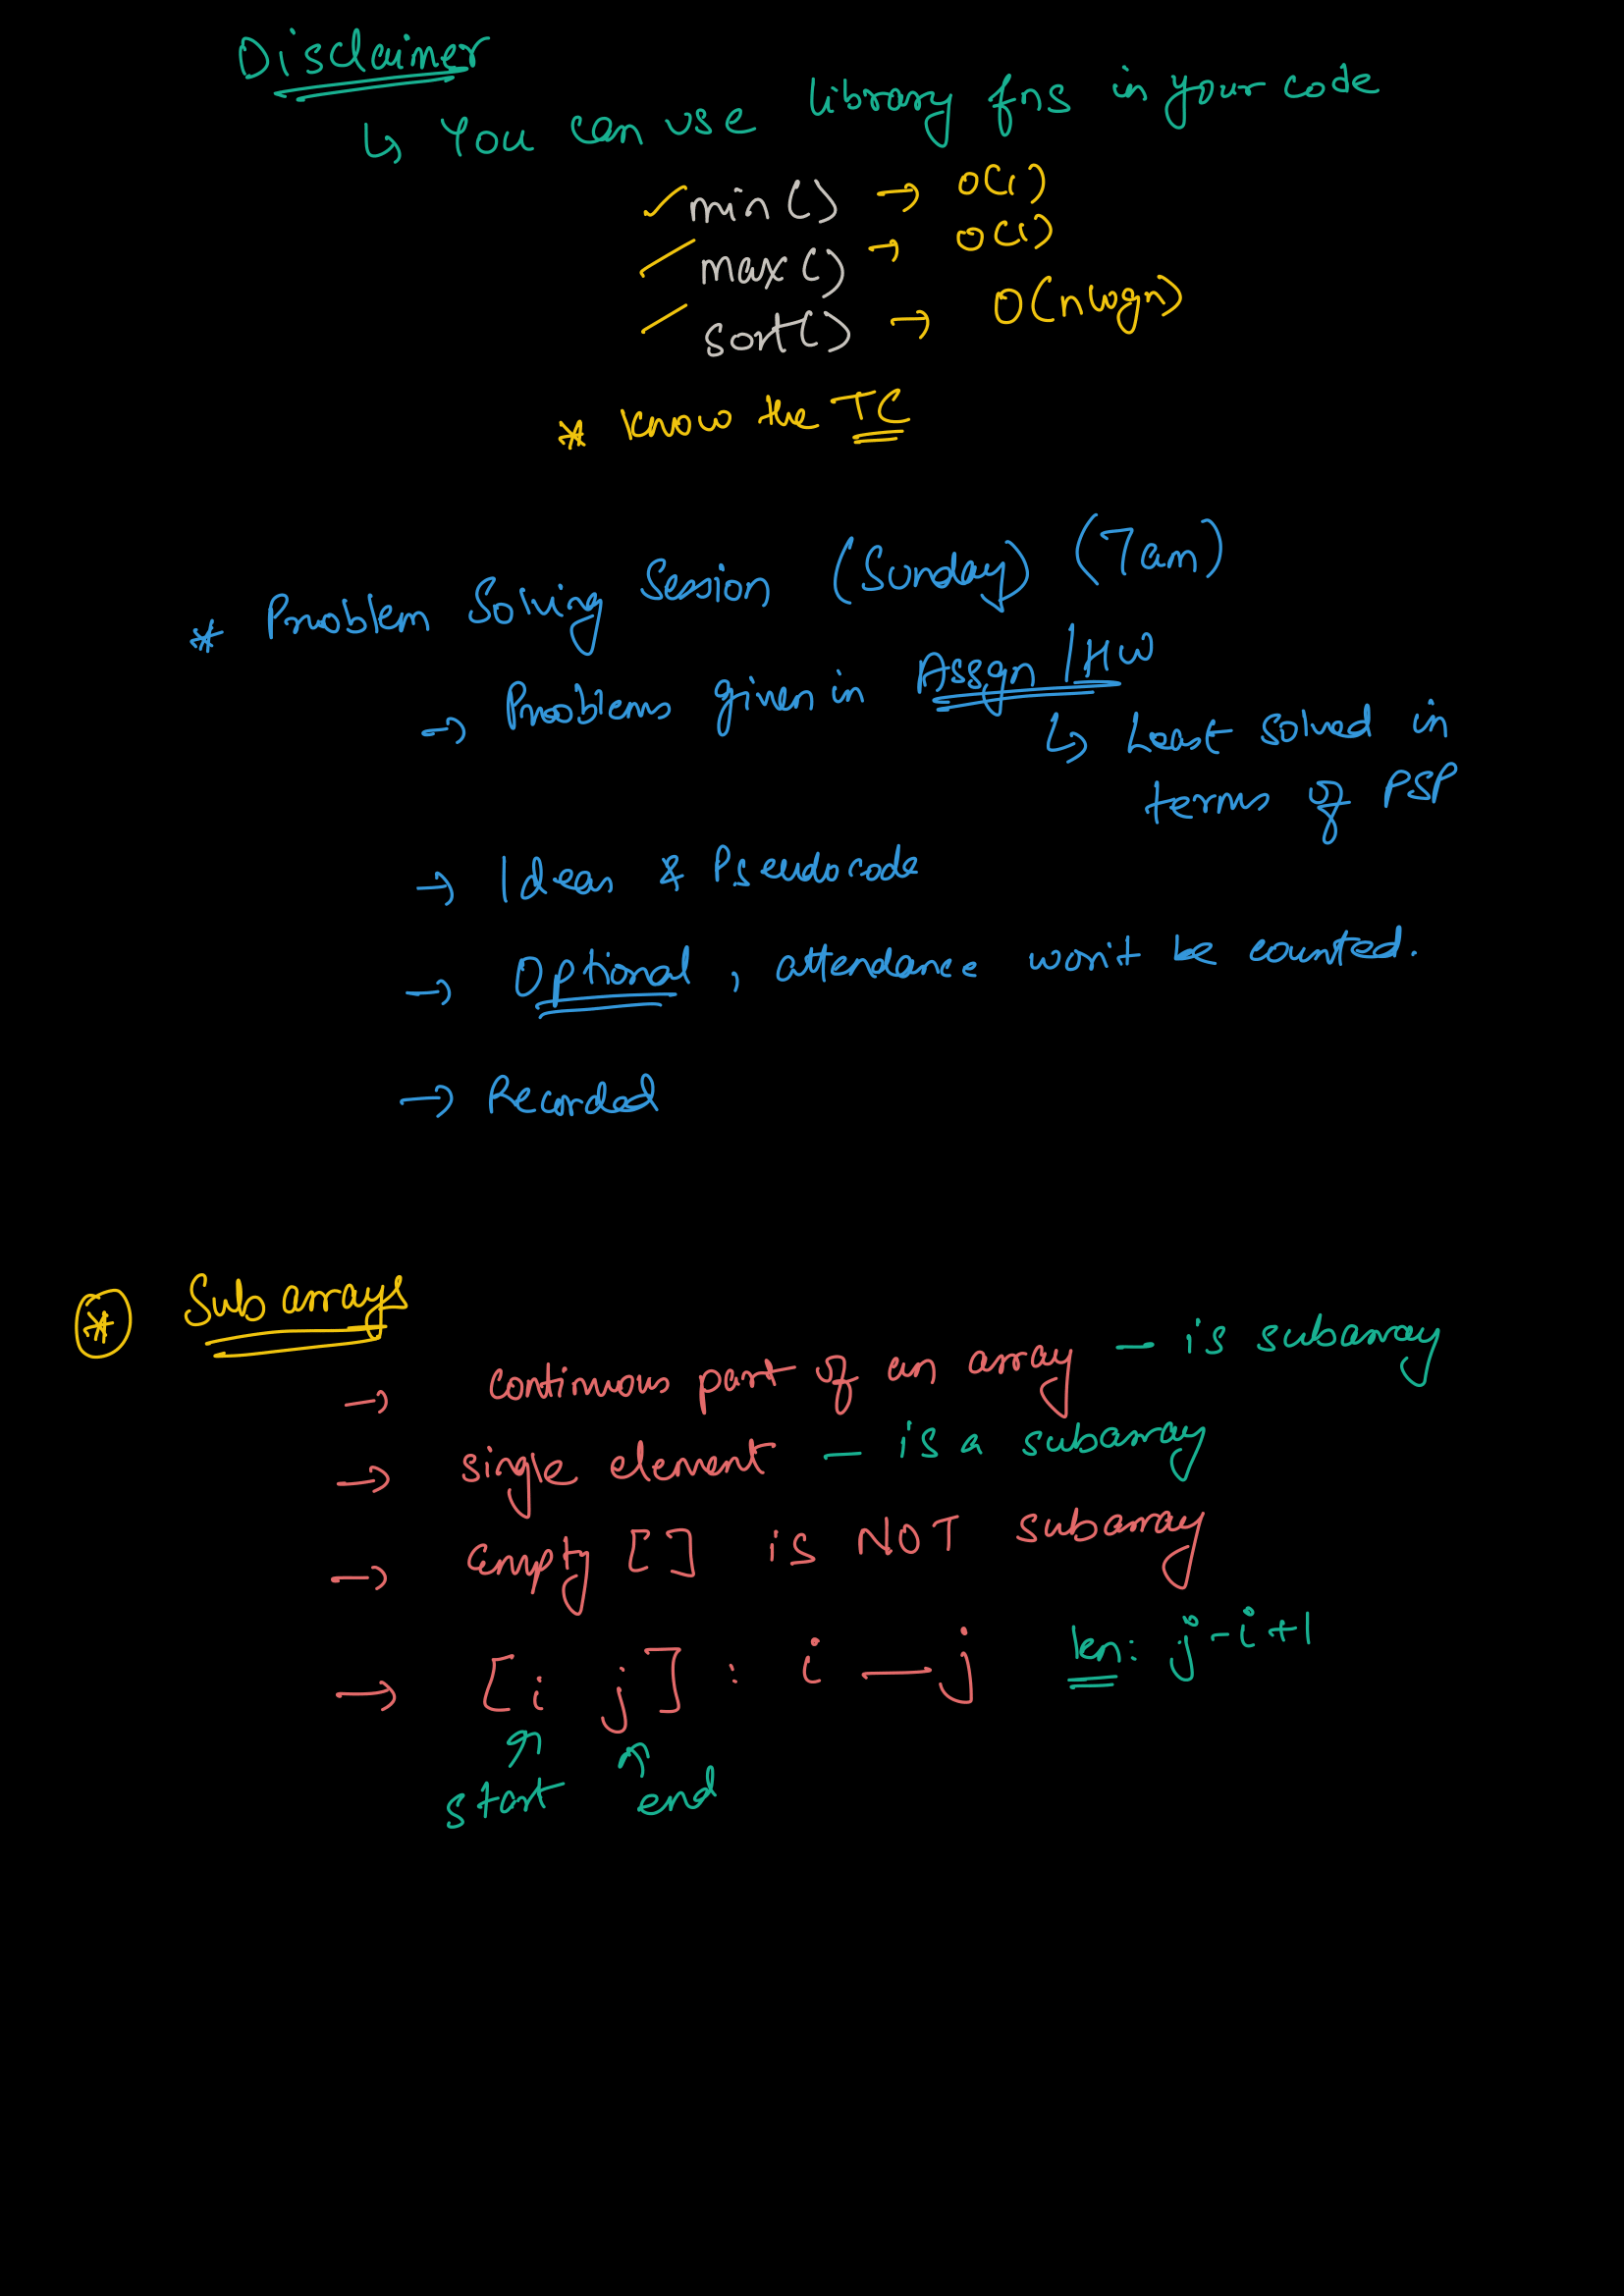 Disclaimer
↳ You can use library fns in your code
✓ min() → O(1)
✓ max() → O(1)
✓ sort() → O(nlogn)
* Know the TC
* Problem Solving Session (Sunday) (7am)
→ Problems given in Assgn / HW
↳ Least solved in
terms of PSP
→ Ideas & Pseudocode
→ Optional, attendance won't be counted.
→ Recorded
* Subarrays
→ continuous part of an array - is subarray
→ single element - is a subarray
→ empty [] is NOT subarray
→ [i j] : i — j len: j-i+1
start end